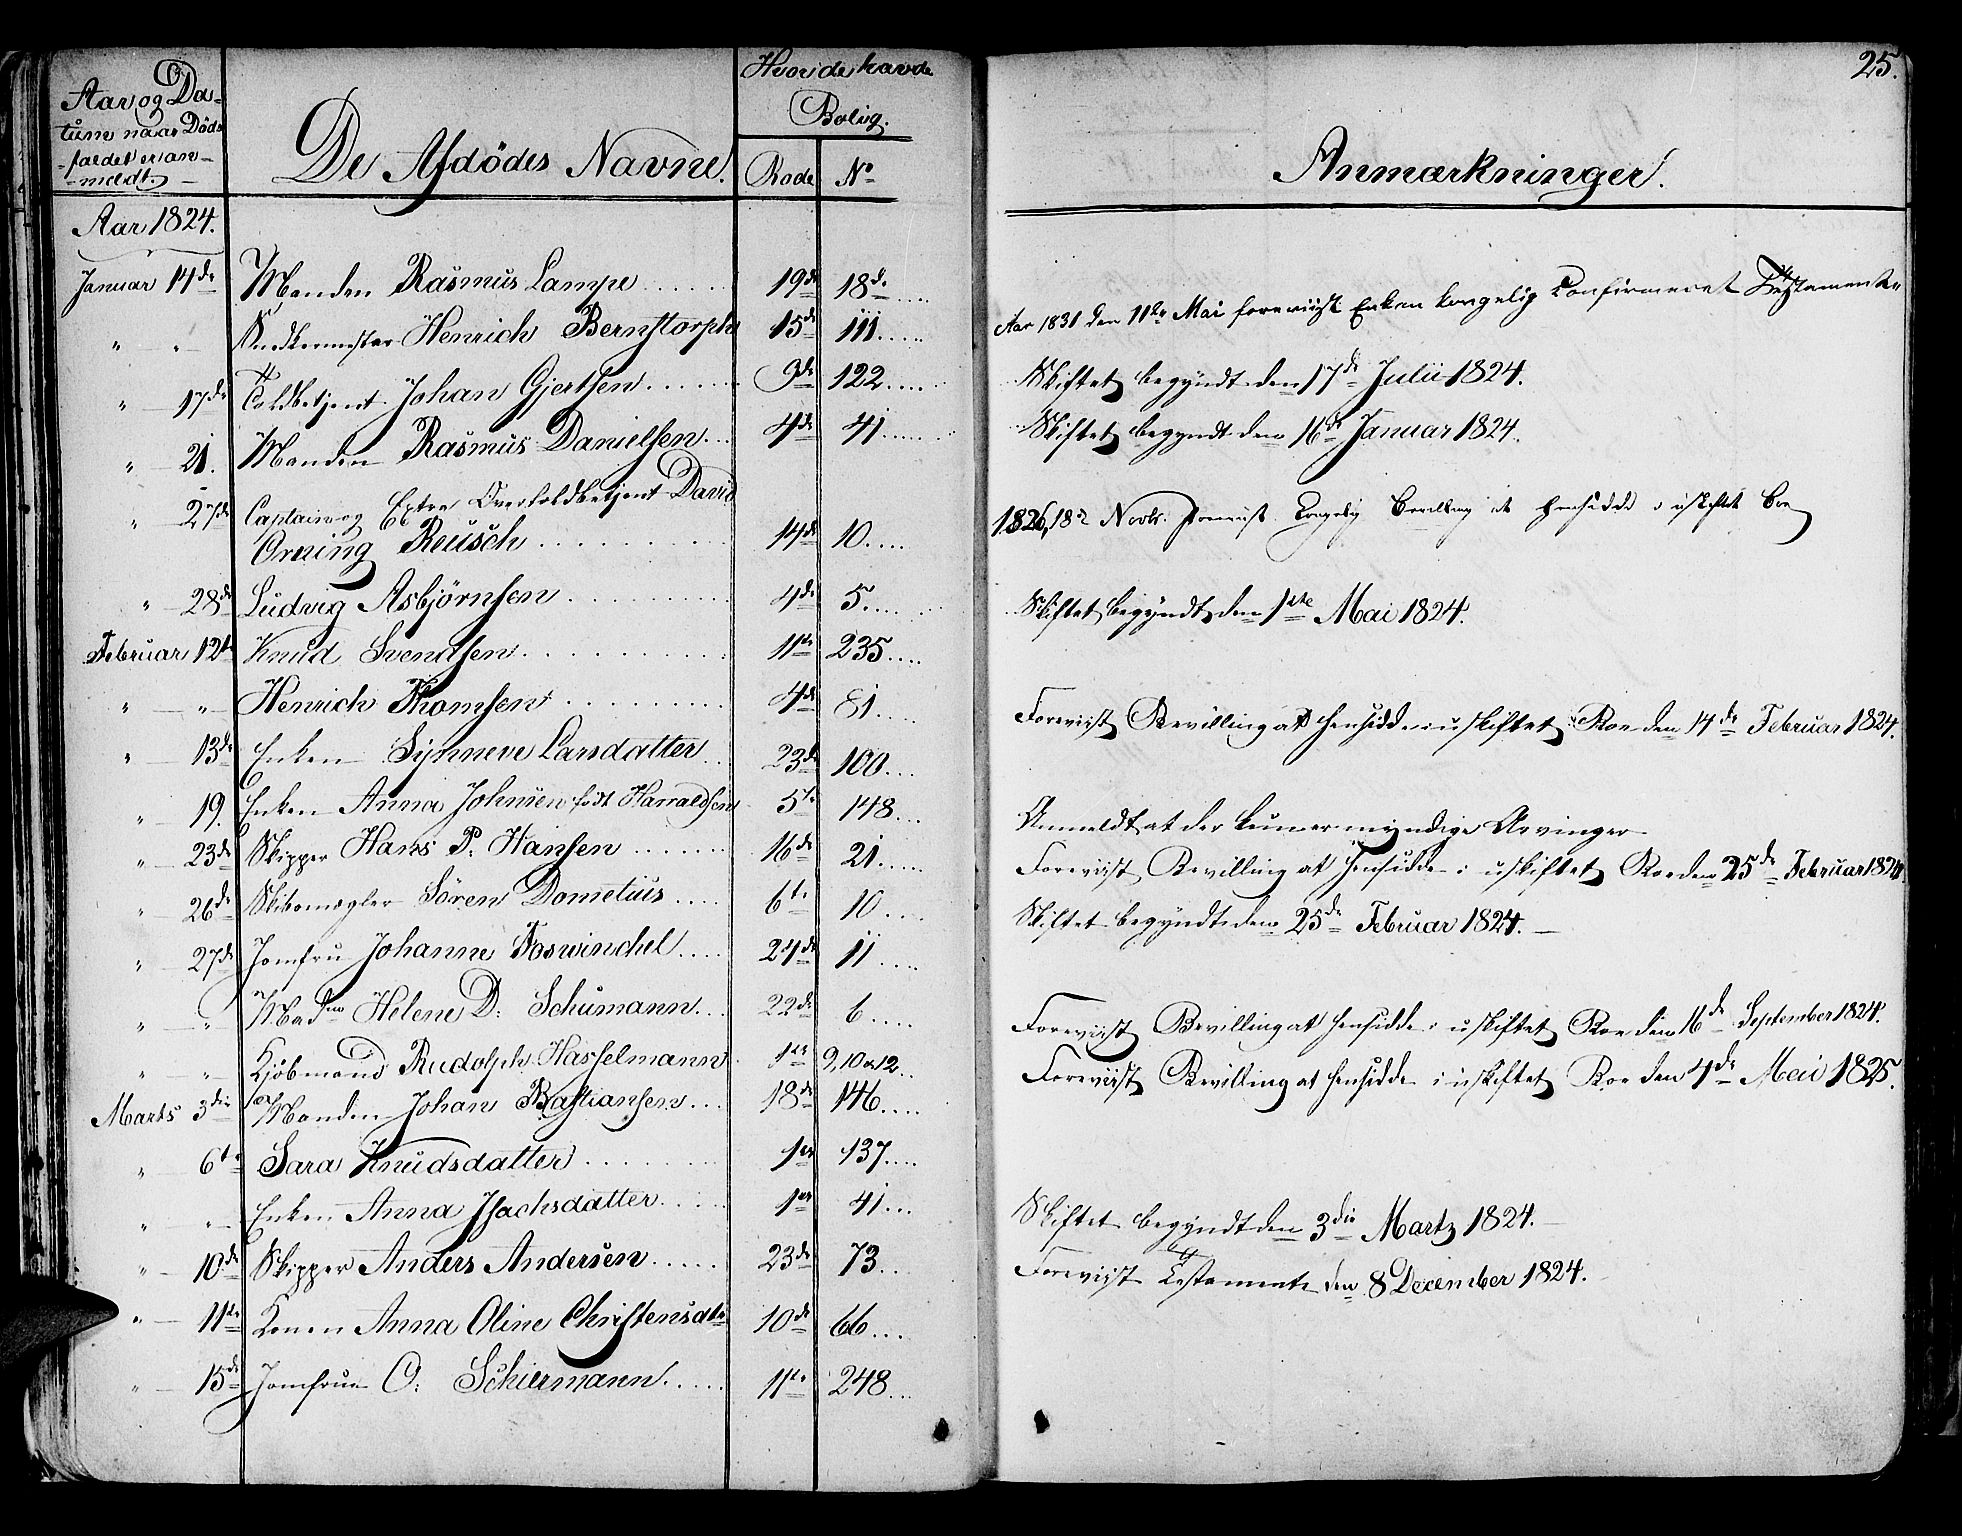 Aar og Da-
tum naar Döds
faldet er an-
meldt.
De Afdödes Navne.
Hvor de havde
Bolig.
Rode No
Aar 1824.
Januar 14de Manden Rasmus Lampe 19de 18de
" " Snedkermester Henrich Bernstorph 15de 111
" 17de Toldbetjent Johan Gjertsen 3de 122
" 21. Manden Rasmus Danielsen 4de 41
" 27de Captain og Extra Overtoldbetjent David
Orning Reusch 14de 10
" 28de Ludvig Asbjörnsen 4de 5
Februar 12te Knud Svendsen 11te 235
" " Henrich Thomsen 4de 81
" 13de Enken Synneve Larsdatter 23de 100
" 19. Enken Anna Johnsen fodt Harraldsen 5te 148
" 23de Skipper Hans P: Hansen 16de 21
" 26de Skibsmægler Sören Dometius 6te 10
" 27de Jomfru Johanne Foswinckel 24de 11
" " Madme Helene D: Schumann 22de 6
" " Kjöbmand Rudolph Hasselmann 1ste 9, 10 & 12
Marts 3die Manden Johan Bastiansen 18de 146
" 6te Sara Knudsdatter 1ste 137
" " Enken Anna Isachsdatter 1ste 41
" 10de Skipper Anders Andersen 23de 73
" 11te Konen Anna Oline Christensdtr 10de 66
" 15de Jomfrue C: Schiermann 11te 248
25.
Anmærkninger.
Aar 1831 den 11te Mai foreviist Enken kongelig Confirmeret Testamente
Skiftet begyndt den 17de Julii 1824.
Skiftet begyndt den 16de Januar 1824.
1826, 18de Novbr. foreviist Kongelig Bevilling at hensidde i uskiftet Boe
Skiftet begyndt den 1ste Mai 1824.
Foreviist Bevilling at hensidde i uskiftet Boe den 14de Februar 1824.
Anmeldt at der kun er myndige Arvinger
Foreviist Bevilling at hensidde i uskiftet Boe den 25de Februar 1824.
Skiftet begyndt den 25de Februar 1824.
Foreviist Bevilling at hensidde i uskiftet Boe den 16de September 1824.
Foreviist Bevilling at hensidde i uskiftet Boe den 4de Mai 1825.
Skiftet begyndt den 3die Martz 1824.
Foreviist Testamente den 8 December 1824.